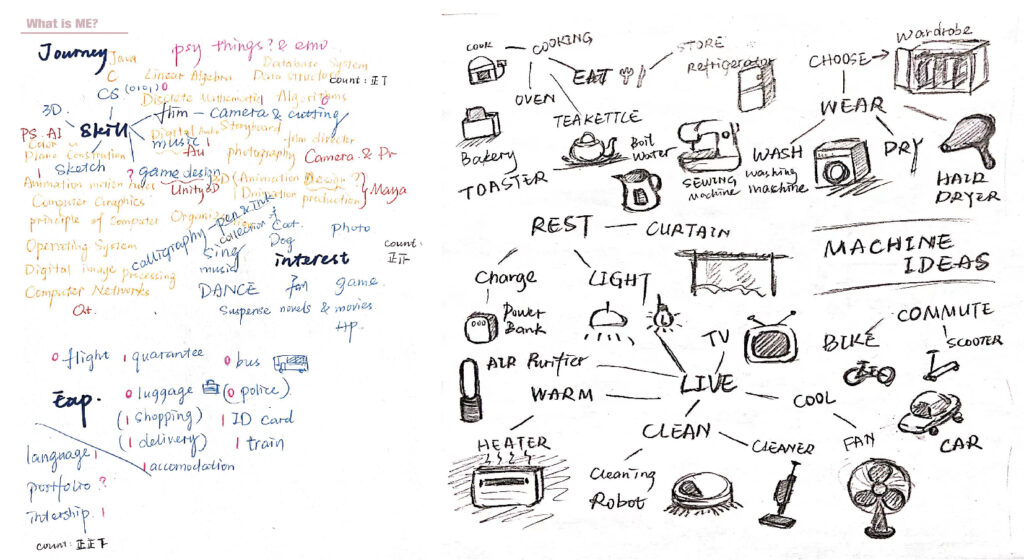 What is ME?
Journey
psy things? & emo.
Java
C
Linear Algebra
Database System
Data structure
count: 正丅
CS (0101)0
Discrete Mathematics
Algorithms
3D
film - camera & cutting
PS. AI
Skill
Digital
Storyboard
film director
music
Au
photography
Camera & Pr
Sketch
? game design
Unity3D
3D (Animation Design ?
production)
Maya
Animation motion
Computer Graphics
principle of Computer
calligraphy - pen & ink
collection of
Cat.
Dog
photo
Operating System
Sing
music
interest
count:
正正
Digital image processing
Computer Networks
DANCE
game.
Suspense novels & movies
HP.
0 flight
1 quarantee
0 bus
Exp.
0 luggage
(0 police)
(1 shopping)
1 ID card
(1 delivery)
1 train
1 accomodation
language 1
portfolio ?
intership. 1
count: 正正下
COOK
COOKING
EAT
STORE
Refrigerator
OVEN
TEAKETTLE
Boil
Water
Bakery
TOASTER
SEWING
Machine
CHOOSE
Wardrobe
WEAR
WASH
washing
machine
DRY
HAIR
DRYER
REST
CURTAIN
MACHINE
IDEAS
Charge
LIGHT
Power
Bank
TV
AIR Purifier
LIVE
WARM
COOL
BIKE
COMMUTE
SCOOTER
CAR
HEATER
CLEAN
CLEANER
Cleaning
Robot
FAN